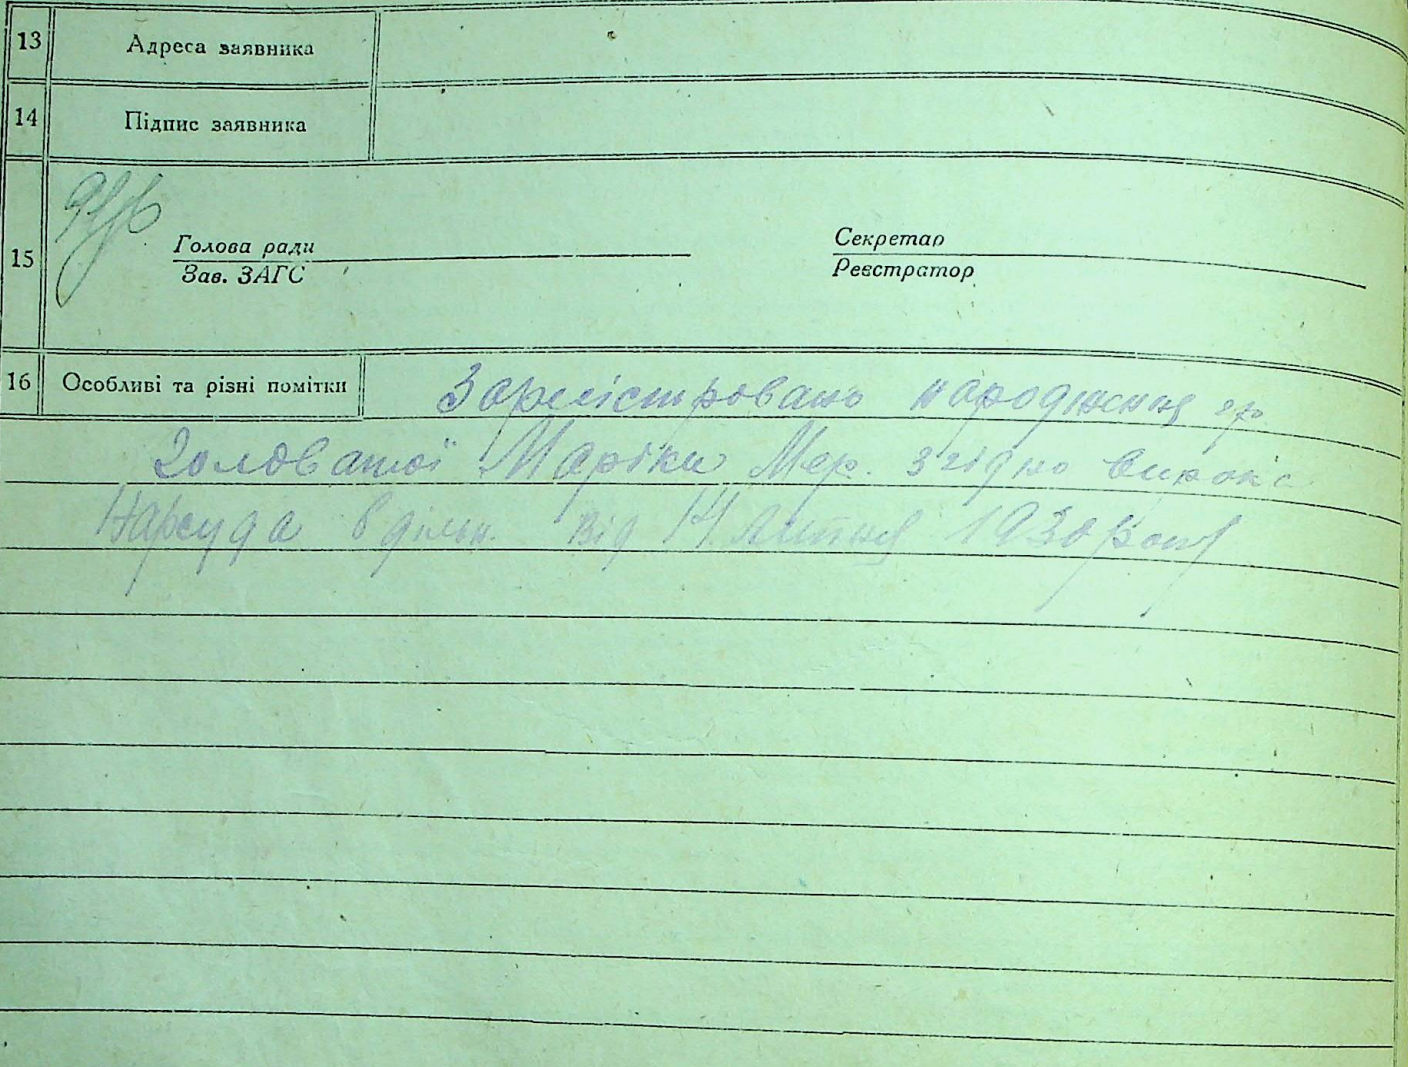 13 Адреса заявника
14 Підпис заявника
15 Голова ради Секретар
Зав. ЗАГС Реєстратор
16 Особливі та різні помітки Зареєстровано народження гр.
Головатої Марії згідно
Нарсуда 8 дільн. від 14 липня 1930 року